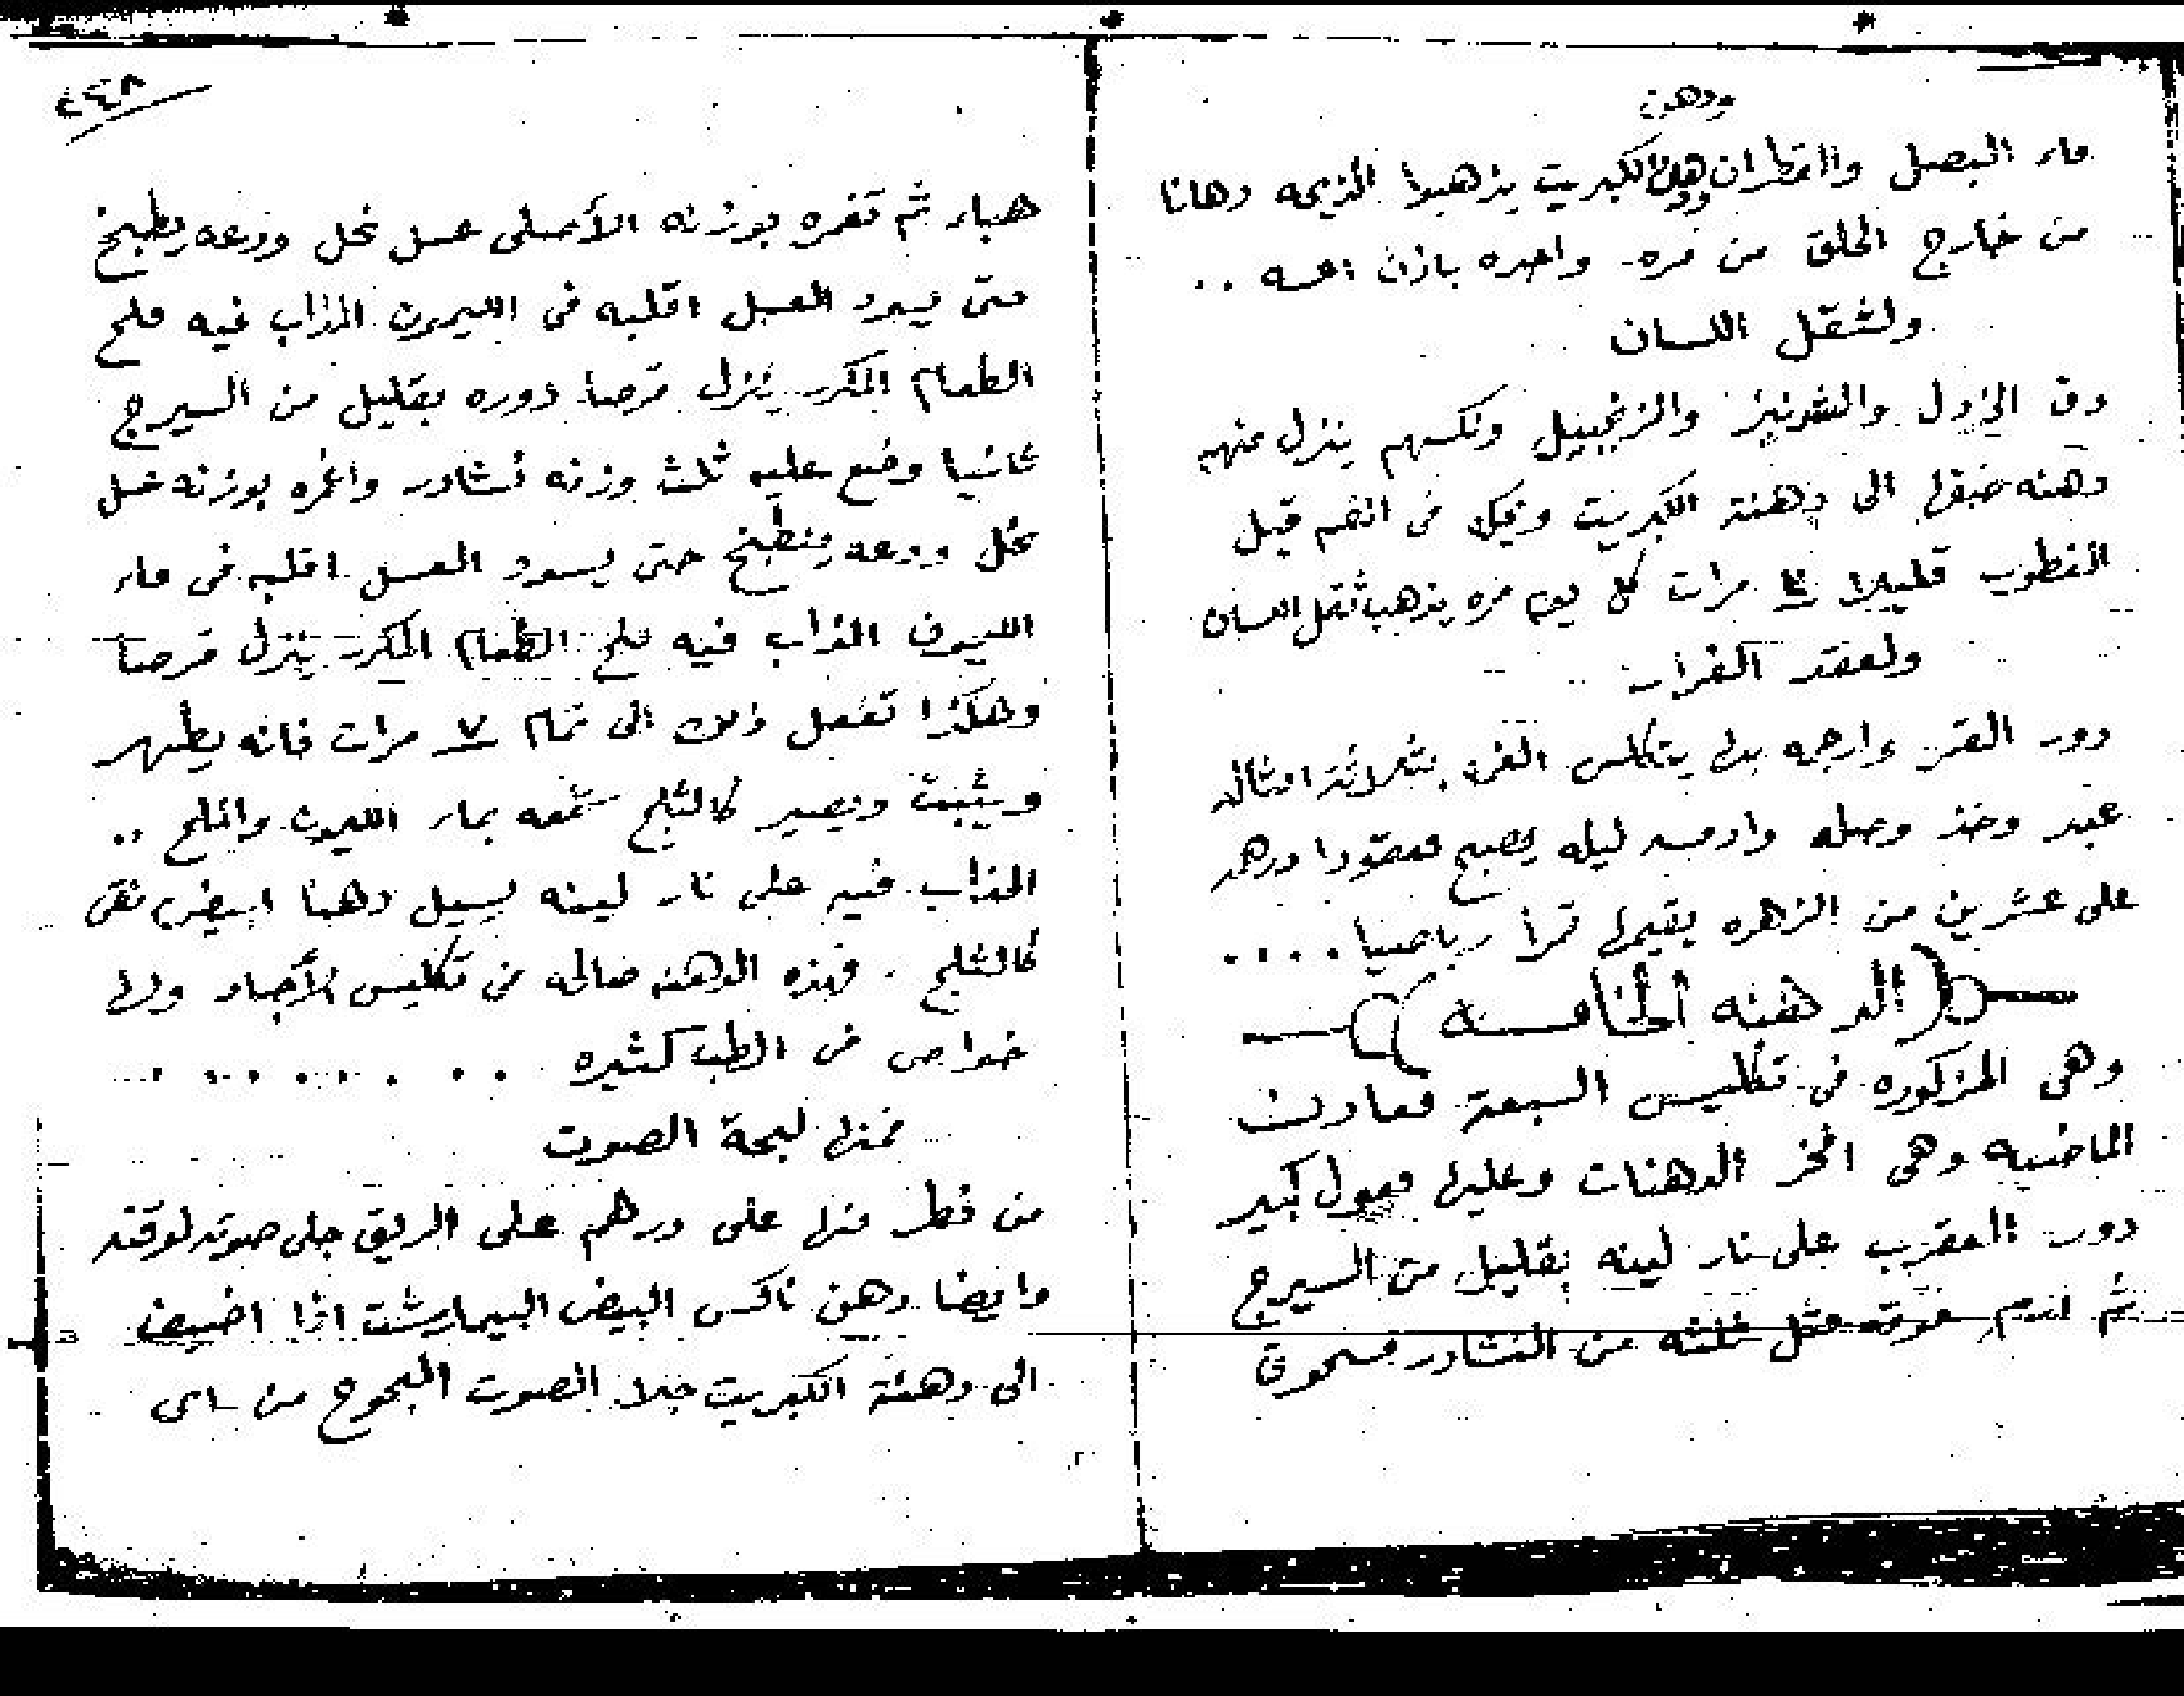 ودهن
ماء البصل والقطران ودهن الكبريت يذهبوا الذبحه دهانا
من خارج الحلق من مره واحده باذن الله ..
ولثقل اللسان
دق الخردل والشونيز والزنجبيل ونكسهم ينزل منهم
دهنه ضيفها الى دهنة الكبريت ويحك فى الفم قبل
الفطور قليلا مرات كل يوم مره يذهب ثقل اللسان
ولعقد الفرار
دور القمر وارجمه بها يتكلس الغه بثلاثة امثاله
عبد وخذ وصله وادمسه ليله يصبح معقودا درهم
على عشرين من الزهره يقيمها قمرا رياضيا ....
(الدهنه الخامسه)
وهى المذكوره فى تكليس السبعة معادن
الماضيه وهى افخر الدهنات وعليها معول كبير
دور العقرب على نار لينه بقليل من السيرج
ثم مثل ثلثه من النشادر مسحوق
٤٤٨
هباء ثم تغمره بوزنه الأصلى عسل نحل ودعه يطبخ
حتى يسود العسل اقلبه فى الليمون المذاب فيه ملح
الطعام المكرر ينزل قرصا دوره بقليل من السيرج
ثانيا وضع عليه ثلث وزنه نشادر واغمره بوزنه عسل
نحل ودعه ينطبخ حتى يسود العسل اقلبه فى ماء
الليمون المذاب فيه ملح الطعام المكرر ينزل قرصا
وهكذا تفعل ذلك الى تمام ٧ مرات فانه يطهر
ويثبت ويصير كالثلج شمعه بماء الليمون والملح ..
المذاب فيه على نار لينه يسيل دهنا ابيض نقى
كالثلج . فهذه الدهنه صالحه فى تكليس الأجساد ولها
خواص فى الطب كثيره ........
فمنها لبحة الصوت
من فطر منها على درهم على الريق جلى صوته لوقته
وايضا دهن ناكس البيض البيمارشت اذا اضيف
الى دهنة الكبريت جلا الصوت المبحوح من ساعى